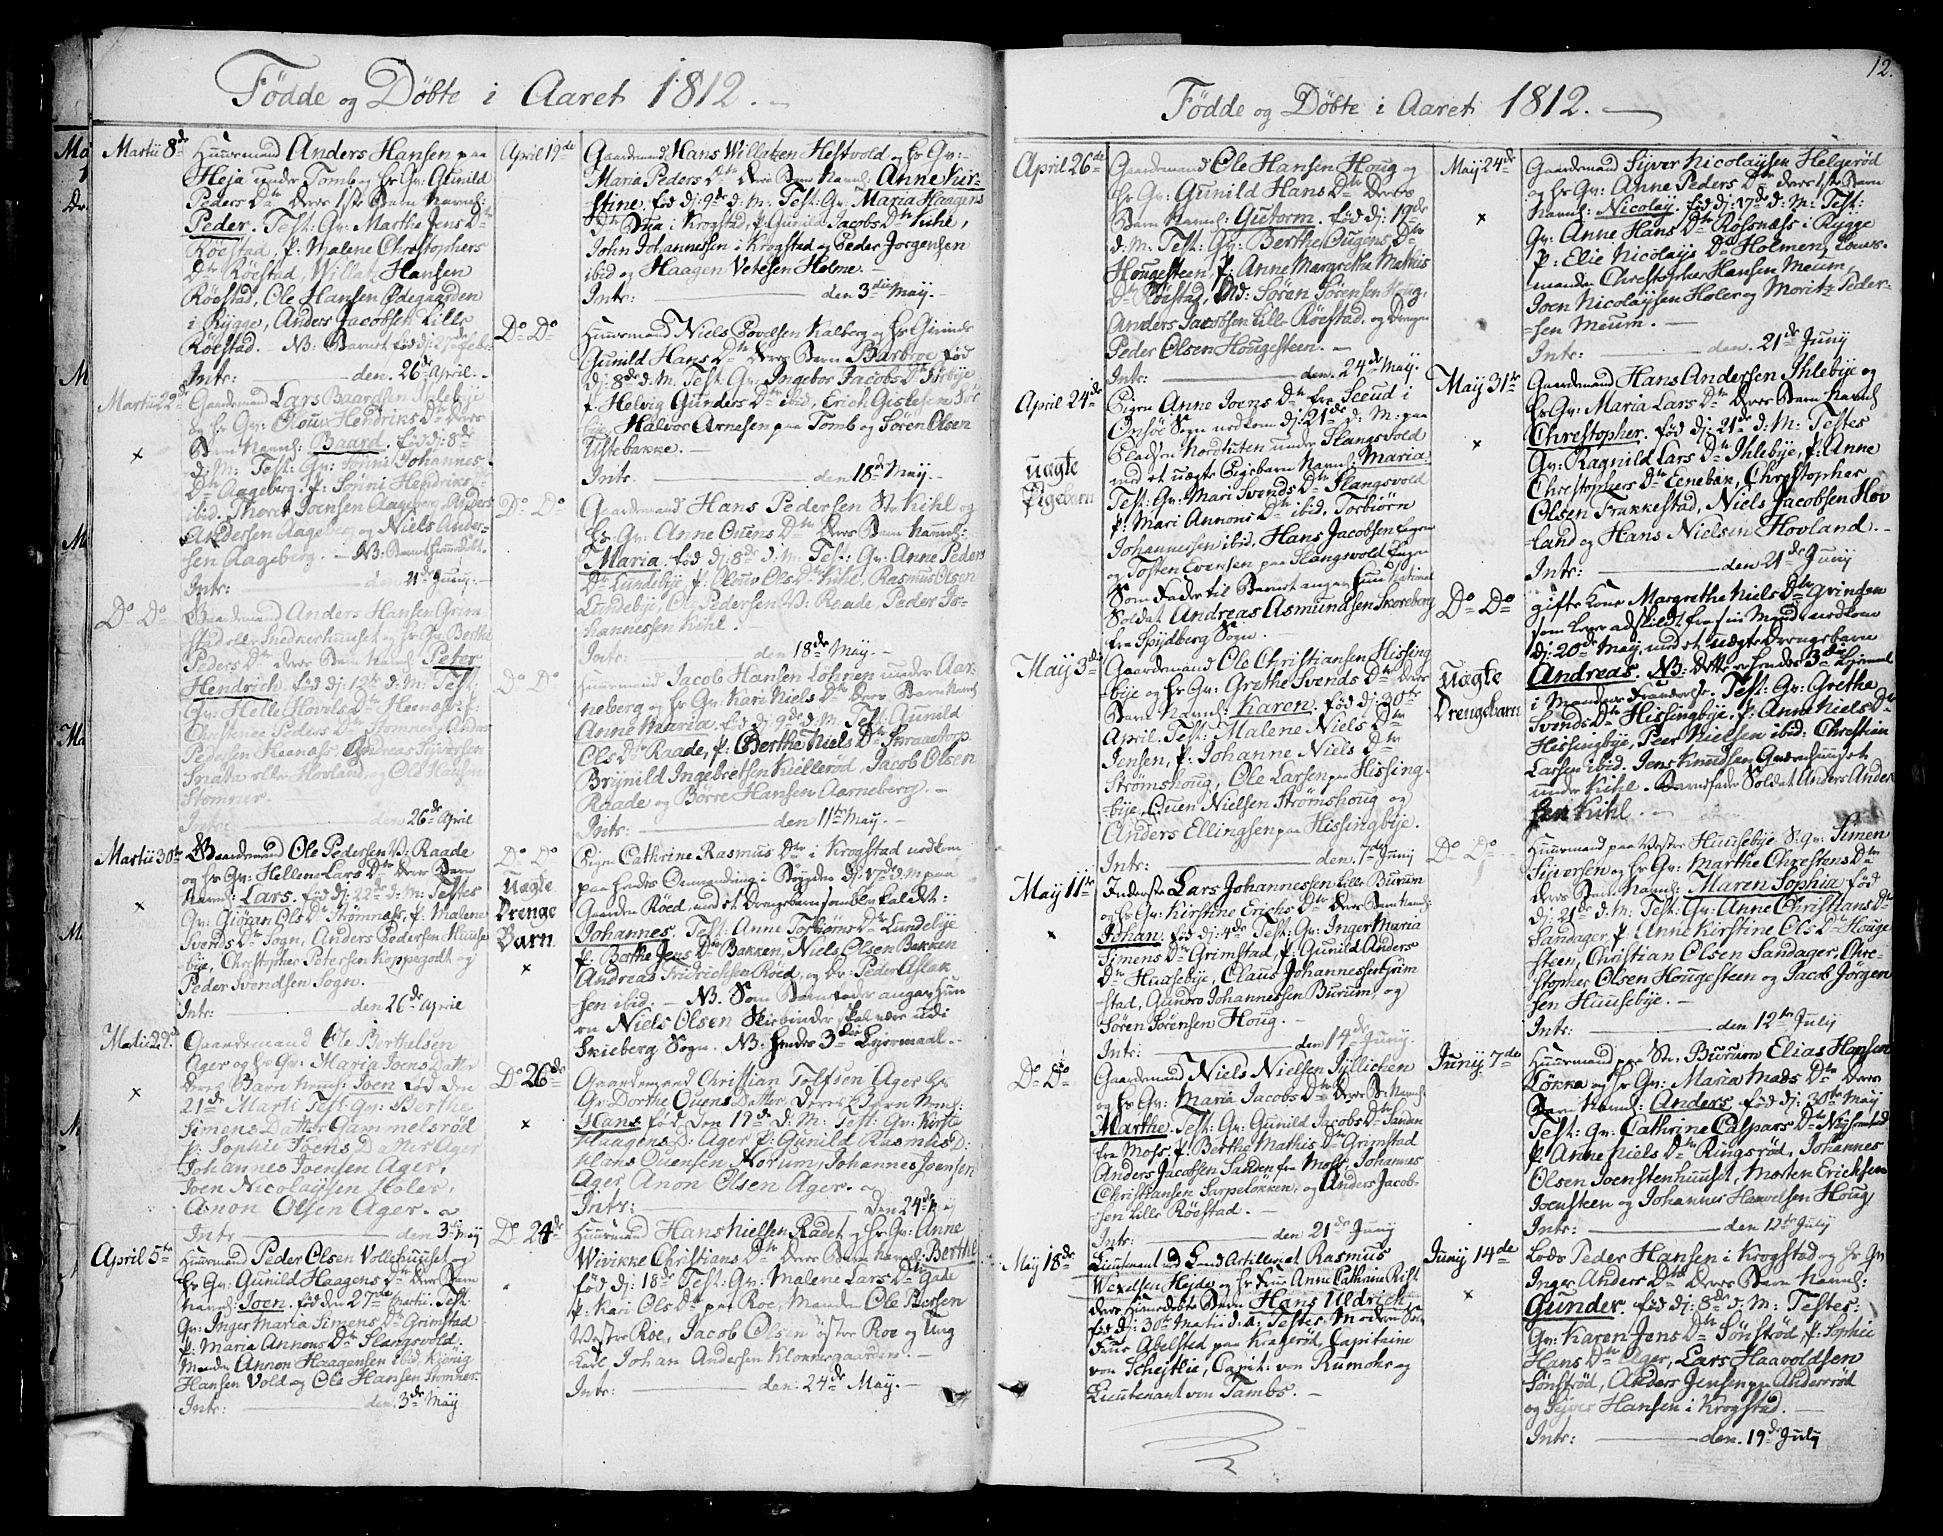 Fødde og Døbte i Aaret 1812.
Martii 8de
Huusmand Anders Hansen paa
Heja under Tomb og hs Gv: Gunild
Peders Dtr deres 1ste Barn navnl:
Peder. Test: Gv: Marthe Jens Dtr
Röestad, p: Malene Christophers
Dtr Röestad, Willatz Hansen
Röestad, Ole Hansen Ødegaarden
i Rygge, Anders Jacobsen Lille
Röestad. – NB: Barnet fød dj: 27de Feb:
Intr: den 26de April.
Martii 22de
Gaardemand Lars Baardsen Ihlebye
og hs Gv: Olouv Hendriks Dtr deres
Barn navnl: Baard. fød dj: 8de
d: M: Test: Gv: Johannes
Dtr Aageberg. p: Hendriks
ibid. Thore Joensen Aageberg, Anders
Andersen Aageberg og Niels Ander-
sen Aageberg. – NB: Barnet hiemedøbt.
Intr: den 21de Juny.
Do Do
Gaardemand Anders Hansen Grim-
stad eller Snekkerhuuset og hs Gv: Berthe
Peders Dtr deres Barn navnl: Peter
Hendrich. fød dj: 12te d: M: Test:
Gv: Helle Hovels Dtr Heenæs p:
Christence Peders Dtr Stomner, Anders
Pedersen Heenæss. Andreas Syversen
eller Hovland, og Ole Hansen
Stomner.
Intr: den 26de April
Martii 30te
Gaardemand Ole Pedersen V: Raade
og hs Gv: Hellene Lars Dtr deres Barn
navnl: Lars. fød dj: 22de d: M: Testes
Gv: Giöran Ols Dtr Strømnæss, p: Malene
Svends Dtr Sogn, Anders Pedersen Huuse-
bye, Christopher Petersen Keppegodt og
Peder Svendsen Sogn.
Intr: den 26de April
Marti 29de
Gaardemand Ole Berthelsen
Ager og hs Gv: Maria Joens Datter
deres Barn knml: Joen fød den
21de Marti Test: Gv: Berthe
Simens Datter Gammelsrød
p: Sophie Joens Datter Ager
Johannes Joensen Ager,
Joen Nicolaysen Holer,
Anon Olsen Ager.
Intr den 3die May
April 5te
Huusmand Peder Olsen Vollehuuset og
hs Gv: Gunild Haagens Dtr deres Barn
navnl: Joen. fød den 27de Martii. Test:
Gv: Inger Maria Simens Dtr Grimstad
p: Maria Annons Dtr Slangsvold.
Mænder Annon Haagensen ibid, Kiönig
Hansen Vold og Ole Hansen Stomner.
Intr: den 3de May
April 19de
Gaardemand Hans Willatzen Hestvold og hs Gv:
Maria Peders Dtr deres Barn navnl: Anne Kir-
stine, fød dj: 9de d: M: Test: Gv: Maria Haagens
Dtr Bua i Krogstad, p: Gunild Jacobs Dtr Kihl,
John Johannessen i Krogstad og Peder Jorgensen
ibid og Haagen Vetesen Holme.
Intr: den 3die May.
Do Do
Huusmand Niels Povelsen Kalberg og hs Qvinde
Gunild Hans Dtr deres Barn Barbroe fød
dj: 8de d: M: Test: Gv: Ingebor Jacobs Dtr
p: Helvig Gunders Dtr ibid, Erich Gistesen
Halvor Arnesen paa Tomb og Søren Olsen
Ustebakke.
Intr. den 18de May.
Do Do
Gaardemand Hans Pedersen Str Kihl og
hs Gv: Anne Ouens Dtr deres Barn navnl:
Maria. fød dj: 8de d: M: Test: Gv: Anne Peders
Dtr Lundebye, p: Olouv Ols Dtr Kihl, Rasmus Olsen
Lundebye, Ole Pedersen V: Raade, Peder Jo-
hannessen Kihl.
Intr: den 18de May.
Do Do
Huusmand Jacob Hansen Löhren under Aar-
neberg og hs Gv: Kari Niels Dtr deres Barn navnl
Anne Maria. fød dj: 9de d: M: Test: Gunild
Ols Dtr Raade, p: Berthe Niels Dtr
Brynild Ingebretsen Kiellerød, Jacob Olsen
Raade og Börre Hansen Aarneberg.
Intr: den 11te May.
Do Do
Uægte
Drenge
Barn
Pigen Cathrine Rasmus Dtr i Krogstad nedkom
paa hendes Omvanding i Bÿgden dj: 17de d: M paa
Gaarden Röed, med et Drengebarn som blev kaldet:
Johannes, Test: Anne Torbiörns Dtr Lundebÿe
p: Berthe Jens Dtr Bakken, Niels Olsen Bakken
Andreas Fridrichsen Röed, og Peder Aslak-
sen ibid. – NB. Som Barnefader angav hun
en Niels Olsen Skibinder, skal være udi
Skieberg Sogn. NB: hendes 3die Lejermaal.
Do 26de
Gaardemand Christian Tolfsen Ager hs
Gv: Dorthe Ouens Datter, deres Barn nml:
Hans fød den 19de d: M: Test: Gv: Kirsti
Haagens D: Ager p: Gunild Rasmus D:
Hans Ouensen, Horum, Johannes Joensen
Ager, Anon Olsen Ager.
Intr: den 24de May
Do 24de
Huusmand Hans Nielsen Rådet og hs Gv: Anne
Wivikke Christians Dtr deres Barn navnl: Berthe
fød dj: 18de Test: Gv: Malene Lars Dtr Gade
p: Kari Ols Dtr paa Roe, Manden Ole Persen
Vestre Roe, Jacob Olsen østre Roe og Ung
karl Johan Andersen Klokkergaarden.
Intr: den 24de May.
12.
Fødde og Døbte i Aaret 1812.
April 26de
Gaardemand Ole Hansen Houg og
hs Gv: Gunild Hans Dtr deres
Barn navnl: Gutorm. fød dj: 19de
d: M: Test: Gv: Berthe Ougens Dtr
Hougesteen, p: Anne Margrethe Mathis
Dtr Röestad, Md: Sören Sörensen Houg,
Anders Jacobsen Lille Röestad. og Drengen
Peder Olsen Hougesteen.
Intr: den 24de May.
April 24de
uægte
Pigebarn
Pigen Anne Joens Dtr fra Seeud i
Onsöe Sogn nedkom dj: 21de d: M: paa
Pladsen Nordtuten under Slangsvold
med et uægte Pigebarn navnl: Maria
Test: Gv: Mari Svends Dtr Slangsvold
p: Mari Annons Dtr ibid, Torbiörn
Johannessen ibid, Hans Jacobsen
og Tosten Evensen paa Slangsvold
Som Fader til Barnet angav hun national
Soldat Andreas Asmundsen Skoreberg
fra Spydberg Sogn.
May 3die
Gaardemand Ole Christiansen Hissing-
bye og hs Gv: Grethe Svends Dtr deres
Barn navnl: Karen. fød dj: 30te
April. Test: Malene Niels Dtr
Jensen, p: Johanne Niels Dtr
Strømshoug, Ole Larsen paa Hissing-
bye, Ouen Nielsen Strømshoug og
Anders Ellingsen paa Hissingbye.
Intr: den 7de Junj
May 11te
Inderste Lars Johannessen Lille Burum
og hs Gv: Kirstine Erichs Dtr deres Barn navnl:
Johan. fød dj: 4de Test: Gv: Inger Maria
Simens Dtr Grimstad, p: Gunild Anders
Dtr Huusebye, Claus Johannessen Grim-
stad, Gundro Johannessen Burum, og
Sören Sörensen Houg.
Intr: den 14de Juny.
Do Do
Gaardemand Niels Nielsen Jyllichen
og hs Gv: Maria Jacobs Dtr deres Br: navnl:
Marthe. Test: Gv: Gunild Jacobs Dtr Sanden
fra Moss, p: Berthe Mathis Dtr Grimstad
Anders Jacobsen Sanden fra Moss, Johannes
Christiansen Sarpeløkken, og Anders Jacob-
sen Lille Röestad.
Intr: den 21de Juny
May 18de
Lieutenant ved Land Artilleriet Rasmus
Wexelsen Hejde og hs Frue Anne Cathrine Rist
deres hiemedøbte Barn Hans Uldrich
fød dj: 30te Martii d: A: Testes Moderen Selv
Frue Abelsted paa Kragerød, Capitaine
von Scheitlie, Capit: von Rumohr og
Lieutenant von Tambs.
May 24de
Gaardemand Syver Nicolaysen Helgerød
og hs Gv: Anne Peders Dtr deres 1ste Barn
navnl: Nicolay. fød dj: 17de d: M: Test:
Gv: Anne Hans Dtr Rossnæss i Rygge
p: Elie Nicolays Dtr Holmen, Lens-
mand Christopher Hansen Meum,
Joen Nicolaysen Holer og Moritz Peder-
sen Meum.
Intr: den 21de Juny
May 31te
Gaardemand Hans Andersen Ihlebye og
hs Gv: Maria Lars Dtr deres Barn navnl
Christopher. fød dj: 21de d: M: Testes
Gv: Ragnild Lars Dtr Ihlebye, p: Anne
Christophers Dtr Eeneban, Christopher
Olsen Frakkestad, Niels Jacobsen Hov-
land og Hans Nielsen Hovland.
Intr: den 21de Juny
Do Do
Uægte
Drengebarn
gifte Kone Margrethe Niels Dtr Grinden
som lever adskildt fra sin Mand nedkom
dj: 20de May med et uægte Drengebarn
Andreas. NB: dette er hendes 3die Lejermaal
i Mandens Fraværelse. Test: Gv: Grethe
Svends Dtr Hissingbye, p: Anne Niels Dtr
Hissingbye, Peer Nielsen ibid: Christian
Larsen ibid. Jens Knudsen Qværnhuuset
under Kihl. Barnefader Soldat Anders Ander-
sen Kihl.
Do Do
Huusmand paa Vestre Huusebye Simen
Syversen og hs Gv: Marthe Chrestens Dtr
deres Barn navnl: Maren Sophia fød
dj: 21de d: M: Test: Gv: Anne Christians Dtr
Sandager, p: Anne Kirstine Ols Dtr Houge-
steen, Christian Olsen Sandager, Chre-
stopher Olsen Hougesteen og Jacob Jörgen-
sen Huusebye.
Intr: den 12te July
Juny 7de
Huusmand paa Str: Burum Elias Hansen
Løkka og hs Gv: Maria Mads Dtr deres
Barn navnl: Anders. fød dj: 30te May
Test: Gv: Cathrine Caspars Dtr
p: Anne Niels Dtr Ringsrød, Johannes
Olsen Joenstenhuuset, Morten Erichsen
Joensteen og Johannes Haavelsen Houg
Intr: den 12te July
Junij 14de
Lods Peder Hansen i Krogstad og hs Gv
Inger Anders Dtr deres Barn navnl:
Gunder. fød dj: 8de d: M: Testes:
Gv: Karen Jens Dtr Sönströd, p: Sophie
Hans Dtr Ager, Lars Haavoldsen
Sönströd, Anders Jensen paa Anderröd
og Syver Hansen i Krogstad.
Intr: den 19de July